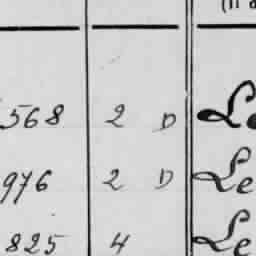 568 2 D Le
976 2 D Le
825 4 Le